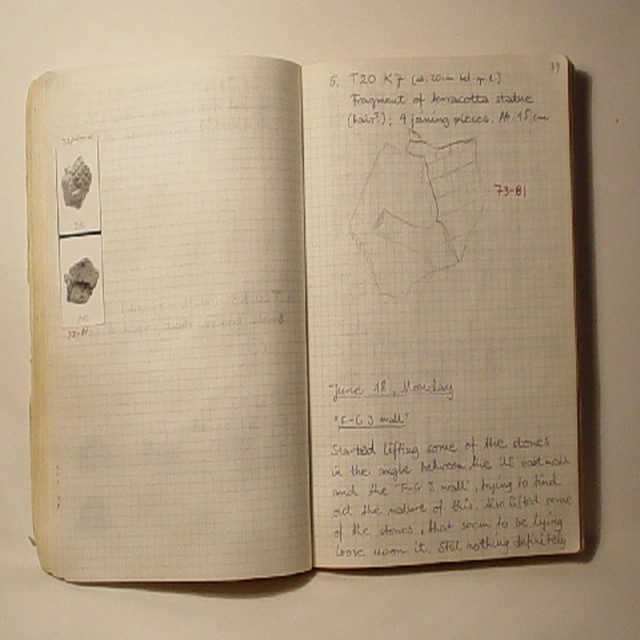 73-81
39
6. T20 K7
Fragment of terracotta statue
(hair?); 4 joining pieces. H: 15 cm
73-81
June 18, Monday
"F-G 3 wall"
Started lifting some of the stones
in the angle between the
and the "F-G 3 wall", trying to find
out the nature of this. Also lifted some
of the stones, that seem to be lying
loose upon it. Still nothing definitely